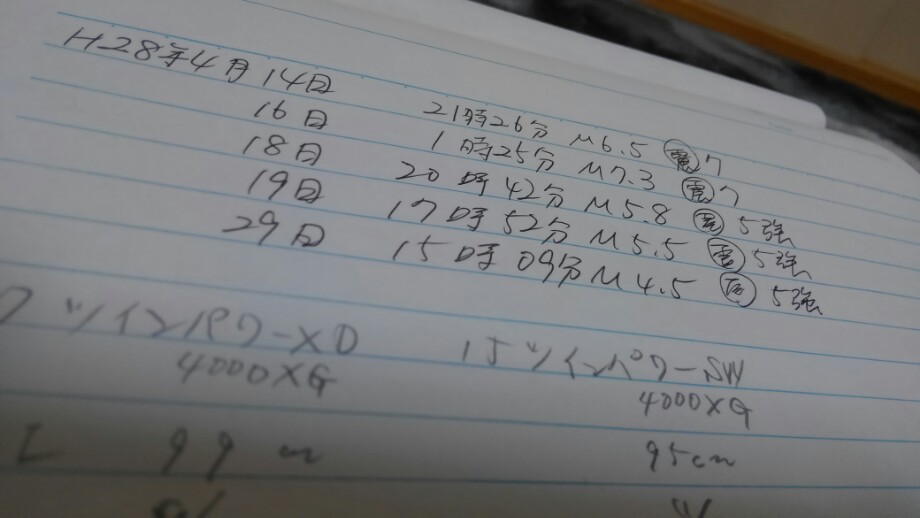 H28年4月14日 21時26分 M6.5 ㊩7
16日 1時25分 M7.3 7
18日 20時42分 M5.8 5強
19日 17時52分 M5.5 5強
29日 15時09分 M4.5 5強
ツインパワーXD 15ツインパワーSW
4000XG 4000XG
99cm 95cm